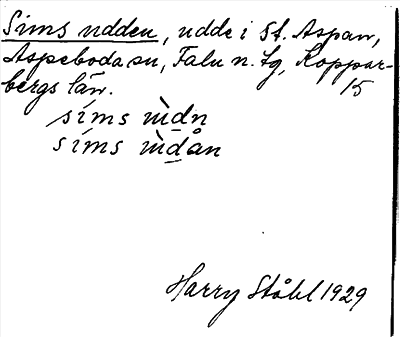 Sims udden, udde i St. Aspan,
Aspeboda sn, Falu n. tg, Koppar-
bergs län. 15
síms ùdn
síms ùdån
Harry Ståhl 1929